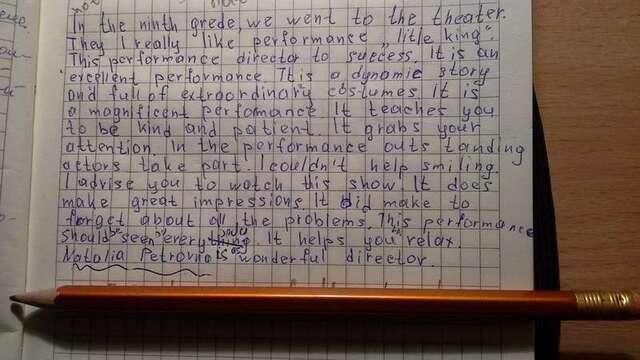 In the ninth grede, we went to the theater.
They I really like performance „litle king".
This performance director to success. It is an
excellent performance. It is a dynamic story
and full of extraordinary costumes. It is
a magnificent perfomance. It teaches you
to be kind and patient. It grabs your
attention. In the performance outs tanding
actors take part. I couldn't help smiling.
I advise you to watch this show. It does
make great impressions. It did make to
forget about all the problems. This performance
should be seen by every. It helps you relax.
Natalia Petrovna is wonderful director.